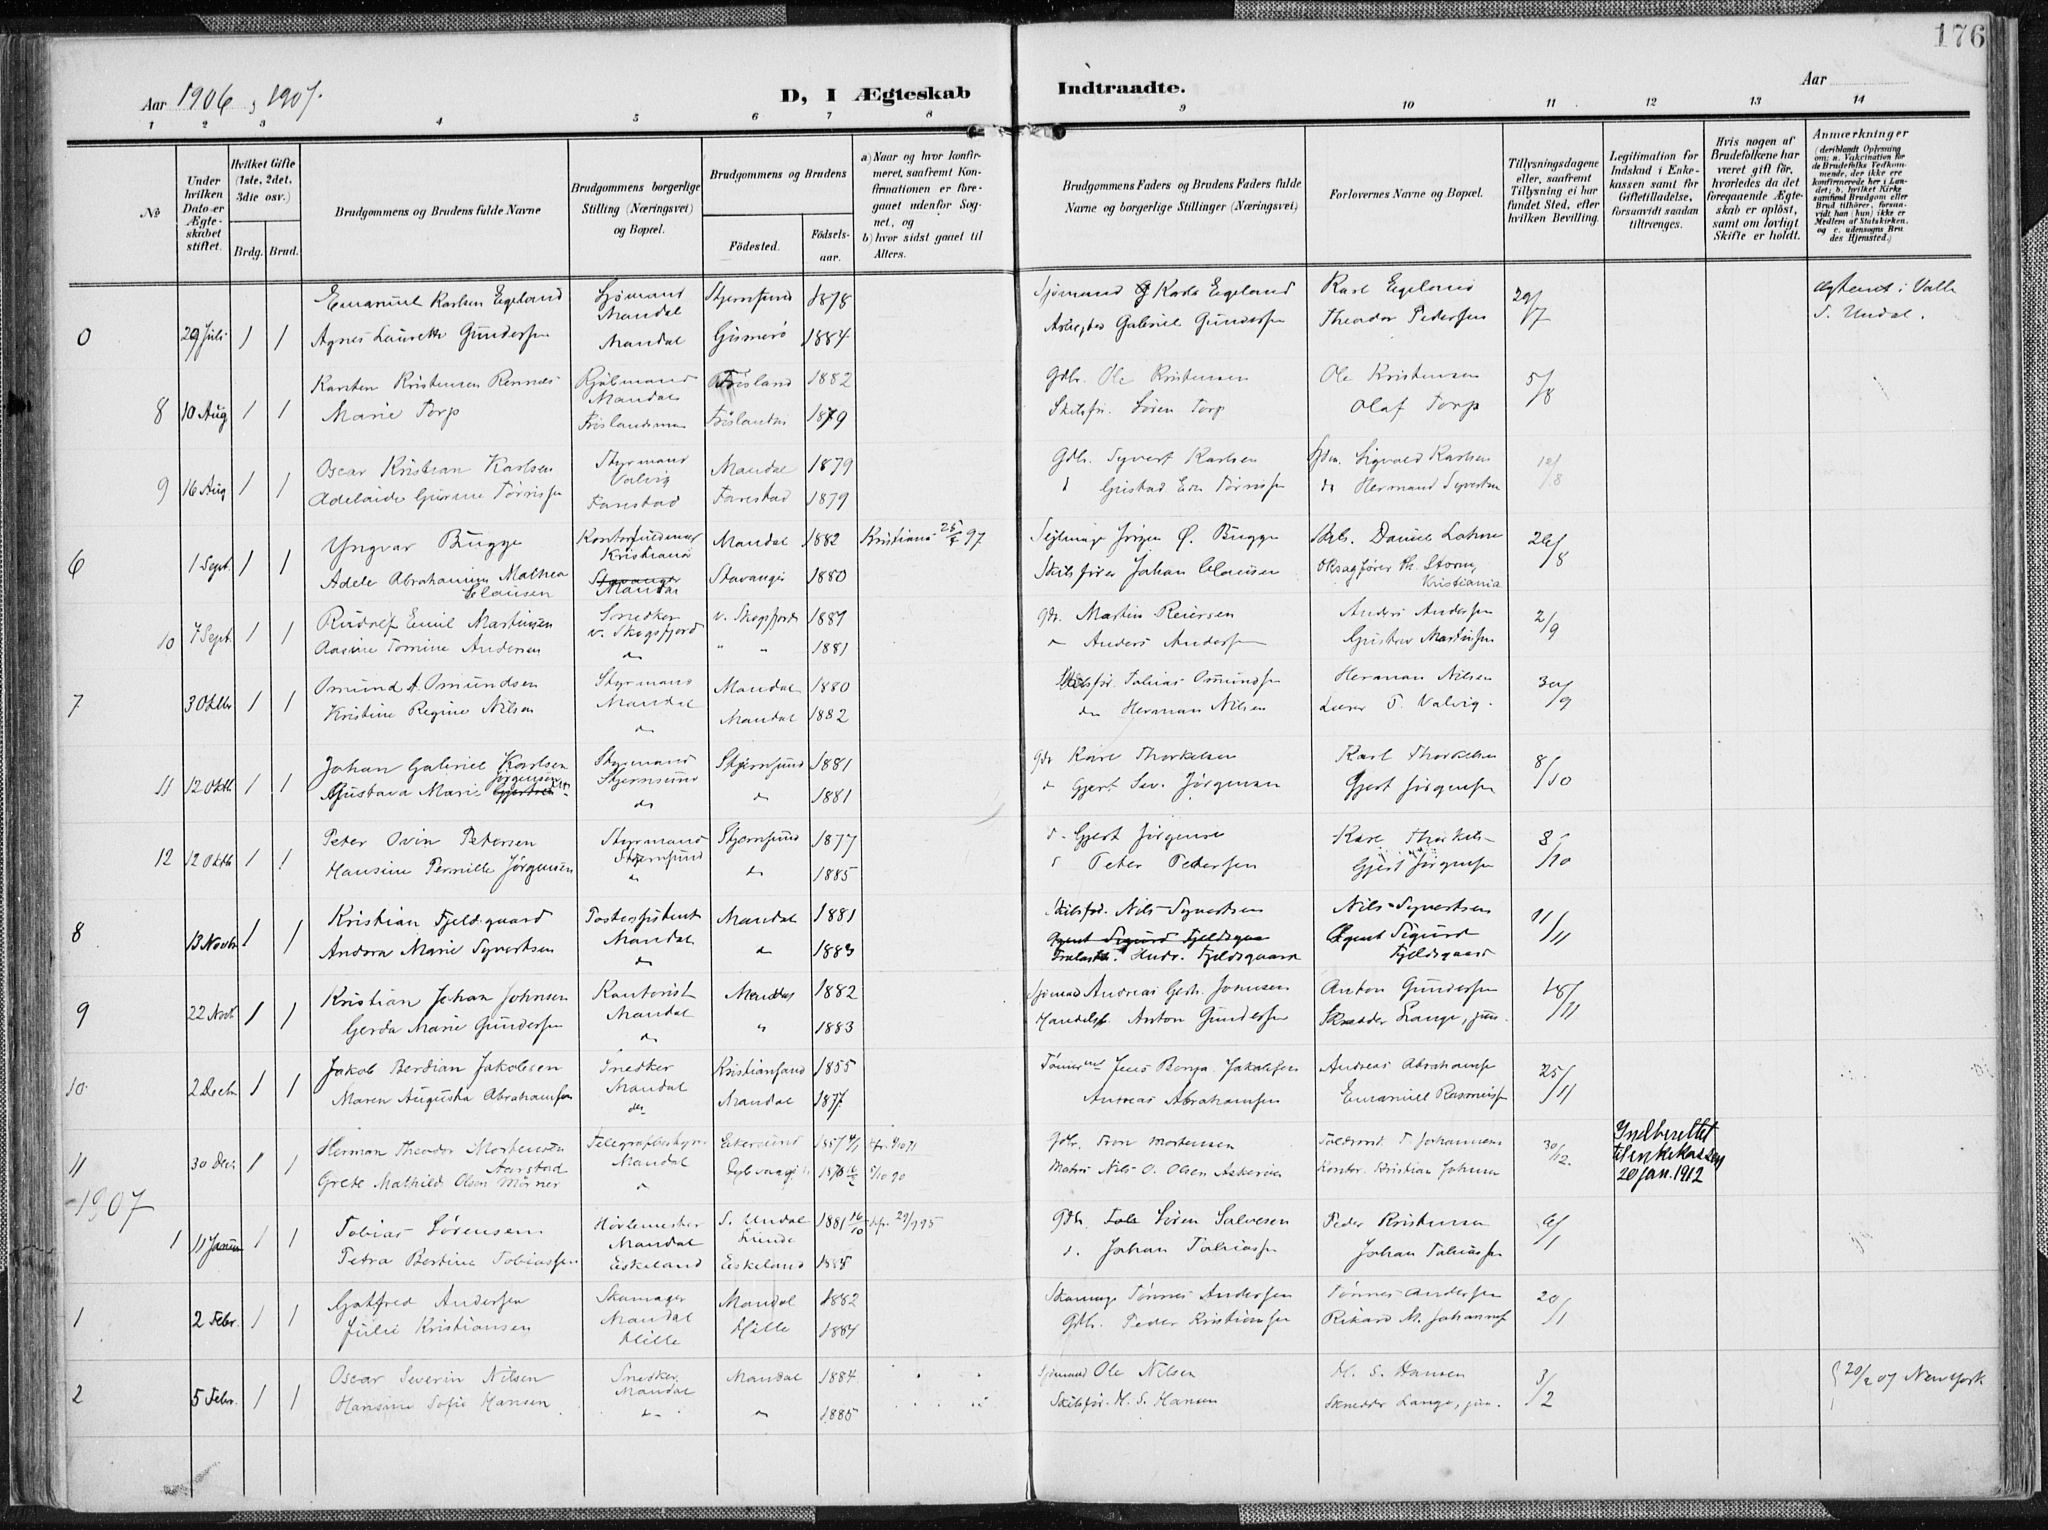 176
Aar 1906 & 1907.
D, I Ægteskab Indtraadte.
Aar
1 2 3 4 5 6 7 8 9 10 11 12 13 14
No
Under hvilken Dato er Ægteskabet stiftet.
Hvilket Gifte (1ste, 2det, 3die osv.)
Brdg. Brud.
Brudgommens og Brudens fulde Navne
Brudgommens borgerlige Stilling (Næringsvei) og Bopæl.
Brudgommens og Brudens
Födested. Födsels-aar.
a) Naar og hvor konfirmeret, saafremt Konfirmationen er foregaaet udenfor Sognet, og
b) hvor sidst gaaet til Alters.
Brudgommens Faders og Brudens Faders fulde Navne og borgerlige Stillinger (Næringsvei)
Forlovernes Navne og Bopæl.
Tillysningsdagene eller, saafremt Tillysning ei har fundet Sted, efter hvilken Bevilling.
Legitimation for Indskud i Enkekassen samt for Giftetilladelse, forsaavidt saadan tiltrænges.
Hvis nogen af Brudefolkene har været gift før, hvorledes da det foregaaende Ægteskab er oplöst, samt om lovligt Skifte er holdt.
Anmærkninger (deriblandt Oplysning om: a. Vakcination for de Brudefolks Vedkommende, der ikke ere konfirmerede her i Landet; b. hvilket Kirkesamfund Brudgom eller Brud tilhörer, forsaavidt han (hun) ikke er Medlem af Statskirken, og c. udensogns Brudes Hjemsted.)
Emanuel Karlsen Egeland Sjømand Mandal Stjernsund 1878 Sjømand Karl Egeland Karl Egeland 29/7 Valle S. Undal.
0 29 Juli 1 1 Agnes Laurette Gundersen Mandal Gismerö 1884 Gabriel Gundersen Theodor Pedersen
Karsten Kristensen Rennes Mandal 1882 Gdb. Ole Kristensen Ole Kristensen 5/8
8 10 Aug 1 1 Marie Torp 1879 Skibsfør. Sören Torp Olaf Torp
Oscar Kristian Karlsen Styrmand Valvig Mandal 1879 Gdb. Syvert Karlsen Sigvald Karlsen 12/8
9 16 Aug 1 1 Adelaide Farestad Farestad 1879 do Herman Syvertsen
Yngvar Bugge Kristiania Mandal 1882 Kristiania 97 Jörgen Ø. Bugge Daniel 26/8
6 1 Sept. 1 1 Adele Mathea Clausen Stavanger Mandal Stavanger 1880 Skibsfører Johan Clausen Th. Storm, Kristiania
Rudolf Emil Martinsen Snedker v. Skogsfjord v. Skogsfjord 1881 Martin Reiersen Anders Andersen 2/9
10 7 Sept. 1 1 Aasine Tomine Andersen do " " 1881 Anders Andersen Gustav Martinsen
Omund A. Omundsen Styrmand Mandal Mandal 1880 Skibsför. Tobias Omundsen Herman Nilsen 30/9
7 3 Oktb 1 1 Kristine Regine Nilsen do Mandal 1882 do Herman Nilsen T. Valvig.
Johan Gabriel Karlsen Styrmand Stjernsund Stjernsund 1881 Gdb Karl Thorkelsen Karl Thorkelsen 8/10
11 12 Oktb 1 1 Gustava Marie Jörgensen do do 1881 Gjert Sev. Jörgensen Gjert Jörgensen
Peter Ovin Petersen Styrmand Stjernsund Stjernsund 1877 Gjert Jörgensen Karl Thorkels- 8/10
12 12 Oktb 1 1 Hansine Pernille Jörgensen do do 1885 Peter Pedersen Gjert Jörgensen
Kristian Fjeldsgaard Postassistent Mandal Mandal 1881 Skibsför. Nils Syvertsen Nils Syvertsen 11/11
8 13 Novbr 1 1 Andora Marie Syvertsen do do 1883 Agent Sigurd Fjeldsgaa Andr. Fjeldsgaard Agent Sigurd Fjeldsgaard
Kristian Johan Johnsen Kontorist Mandal Mandal 1882 Sjømand Andreas Johnsen Anton Gundersen 18/11
9 22 Novb 1 1 Gerda Marie Gundersen do " 1883 Anton Gundersen Skredder Lange, jun.
Jakob Berdian Jakobsen Snedker Mandal Kristiansand 1855 Jens Jakobsen Andreas Abrahamsen 25/11
10 2 Decbr 1 1 Maren Augusta Abrahamsen do Mandal 1877 Andreas Abrahamsen Emanuel Rasmussen
Herman Theodor Mortensen Aarstad Telegrafbestyrer Mandal Ekersund 1857 Gdb. Mortensen T. Johannesen 30/12. Indberettet til enkekassen 20 jan. 1912
11 30 Dec. 1 1 Grete Mathilde Olsen Mörner Nils O. Olsen Kristian Johnsen
1907
Tobias Sörensen Mandal S. Undal 1881 Gdb. Sören Salvesen Peder Kristensen 6/1
1 11 Januar 1 1 Petra Bertine Tobiassen Eskeland Eskeland 1885 Johan Tobiassen Johan Tobiassen
Gotfred Andersen Skomager Mandal Mandal 1882 Tönnes Andersen Tönnes Andersen 20/1
1 2 Febr. 1 1 Julie Kristiansen Hille Hille 1884 Gdb. Peder Kristiansen Rikard M. Johannes
Oscar Severin Nilsen Snedker Mandal Mandal 1884 Sjømand Ole Nilsen H. S. Hansen 3/2 20/2 07 New York
2 5 Febr. 1 1 Hansine Sofie Hansen do do 1885 Skibsför. H. S. Hansen Skredder Lange, jun.